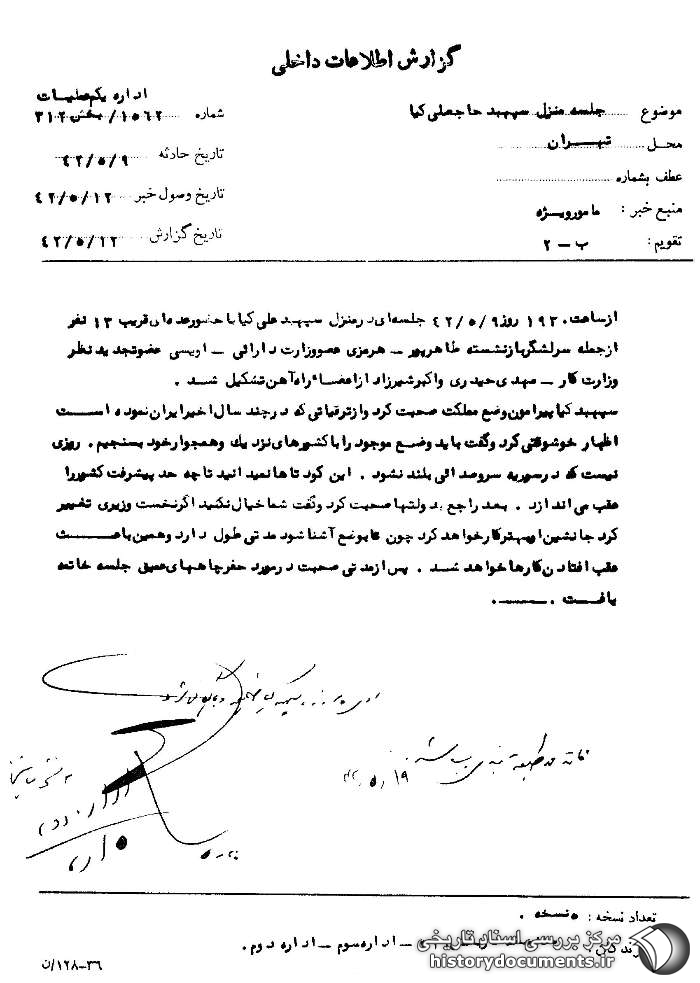 گزارش اطلاعات داخلی
اداره یکم عملیات
موضوع جلسه منزل سپهبد حاجعلی کیا
شماره ۱۵۶۲/بخش ۳۱۲
محل تهران
تاریخ حادثه ۴۲/۵/۹
عطف بشماره
تاریخ وصول خبر ۴۲/۵/۱۲
منبع خبر : مامورویژه
تاریخ گزارش ۴۲/۵/۱۲
تقویم : ب – ۲
ازساعت ۱۹۳۰ روز ۴۲/۵/۹ جلسه‌ای در منزل سپهبد علی کیا با حضورعده‌ای قریب ۱۳ نفر
ازجمله سرلشگربازنشسته طاهرپور – هرمزی عضووزارت دارائی – اویسی عضوتجدیدنظر
وزارت کار – مهدی حیدری واکبرشیرزاد ازاعضاء راه آهن تشکیل شد .
سپهبد کیا پیرامون وضع مملکت صحبت کرد وازترقیاتی که درچند سال اخیرایران نموده است
اظهار خوشوقتی کرد وگفت باید وضع موجود را با کشورهای نزدیك وهمجوارخود بسنجیم . روزی
نیست که درسوریه سروصدائی بلند نشود . این کودتاها نمیدانید تاچه حد پیشرفت کشوررا
عقب می‌اندازد . بعد راجع بدولتها صحبت کرد وگفت شما خیال نکنید اگرنخست وزیری تغییر
کرد جانشین اوبهترکارخواهد کرد چون تا بوضع آشنا شود مدتی طول دارد وهمین باعث
عقب افتادن کارها خواهد شد . پس ازمدتی صحبت درمورد حفرچاههای عمیق جلسه خاتمه
یافت .
۱۹/۵/۴۲
تعداد نسخه : ۵ نسخه .
– اداره سوم – اداره دوم .
مرکز بررسی اسناد تاریخی
historydocuments.ir
۳۶–۱۲۸/ن